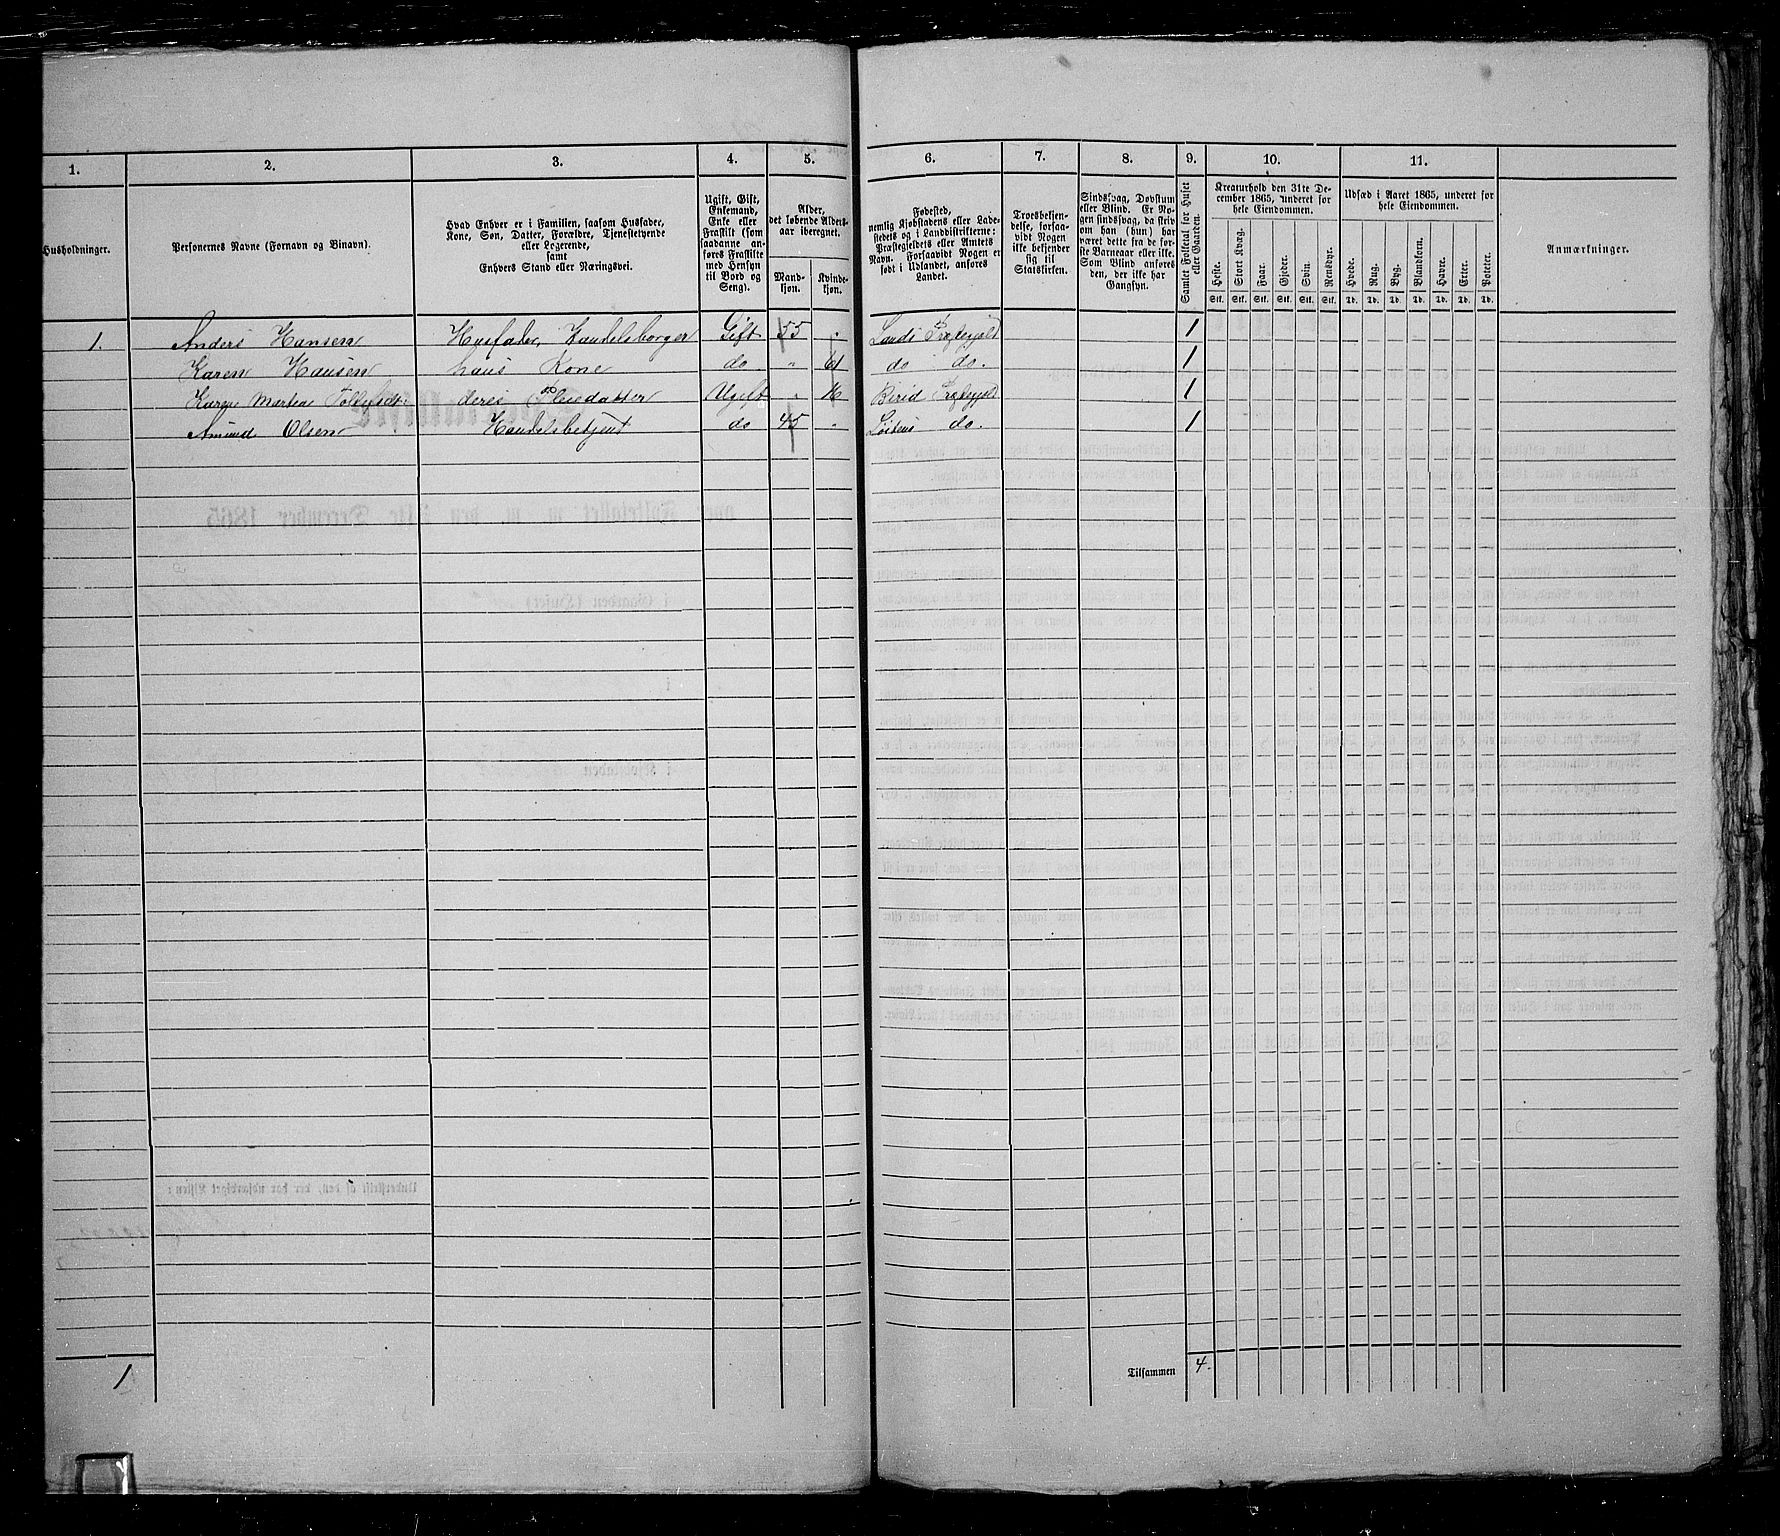 1. 2. 3. 4. 5. 6. 7. 8. 9. 10. 11.
Husholdninger.
Personernes Navne (Fornavn og Binavn).
Hvad Enhver er i Familien, saasom Husfader,
Kone, Søn, Datter, Forældre, Tjenestetyende
eller Logerende,
samt
Enhvers Stand eller Næringsvei.
Ugift, Gift,
Enkemand,
Enke eller
Fraskilt (som
saadanne an-
føres Fraskilte
med Hensyn
til Bord og
Seng).
Alder,
det løbende Alders-
aar iberegnet.
Mand-
kjøn.
Kvinde-
kjøn.
Fødested,
nemlig Kjøbstadens eller Lade-
stedets og i Landdistrikterne:
Præstegjeldets eller Amtets
Navn. Forsaavidt Nogen er
født i Udlandet, anføres
Landet.
Troesbekjen-
delse, forsaa-
vidt Nogen
ikke bekjender
sig til
Statskirken.
Sindssvag, Døvstum
eller Blind. Er No-
gen sindssvag, da skriv
om han (hun) har
været dette fra de før-
ste Barneaar eller ikke.
Som Blind anføres
den, der ikke har
Gangsyn.
Samlet Folketal for Huset
eller Gaarden.
Kreaturhold den 31te De-
cember 1865, underet for
hele Eiendommen.
Heste. Stort Kvæg. Faar. Gjeder. Svin. Rensdyr.
Stk. Stk. Stk. Stk. Stk. Stk.
Udsæd i Aaret 1865, underet for
hele Eiendommen.
Hvede. Rug. Byg. Blandkorn. Havre. Erter. Poteter.
Td. Td. Td. Td. Td. Td. Td.
Anmærkninger.
1. Anders Hansen Husfader, Handelsborger Gift 55 " Lands Præstegjeld 1
Karen Hansen hans Kone do " 61 do do. 1
Karen Martea deres Pleiedatter Ugift " 16 Birid Præstegjeld 1
Amund Olsen Handelsbetjent do 45 " Løitens do. 1
1
Tilsammen 4.